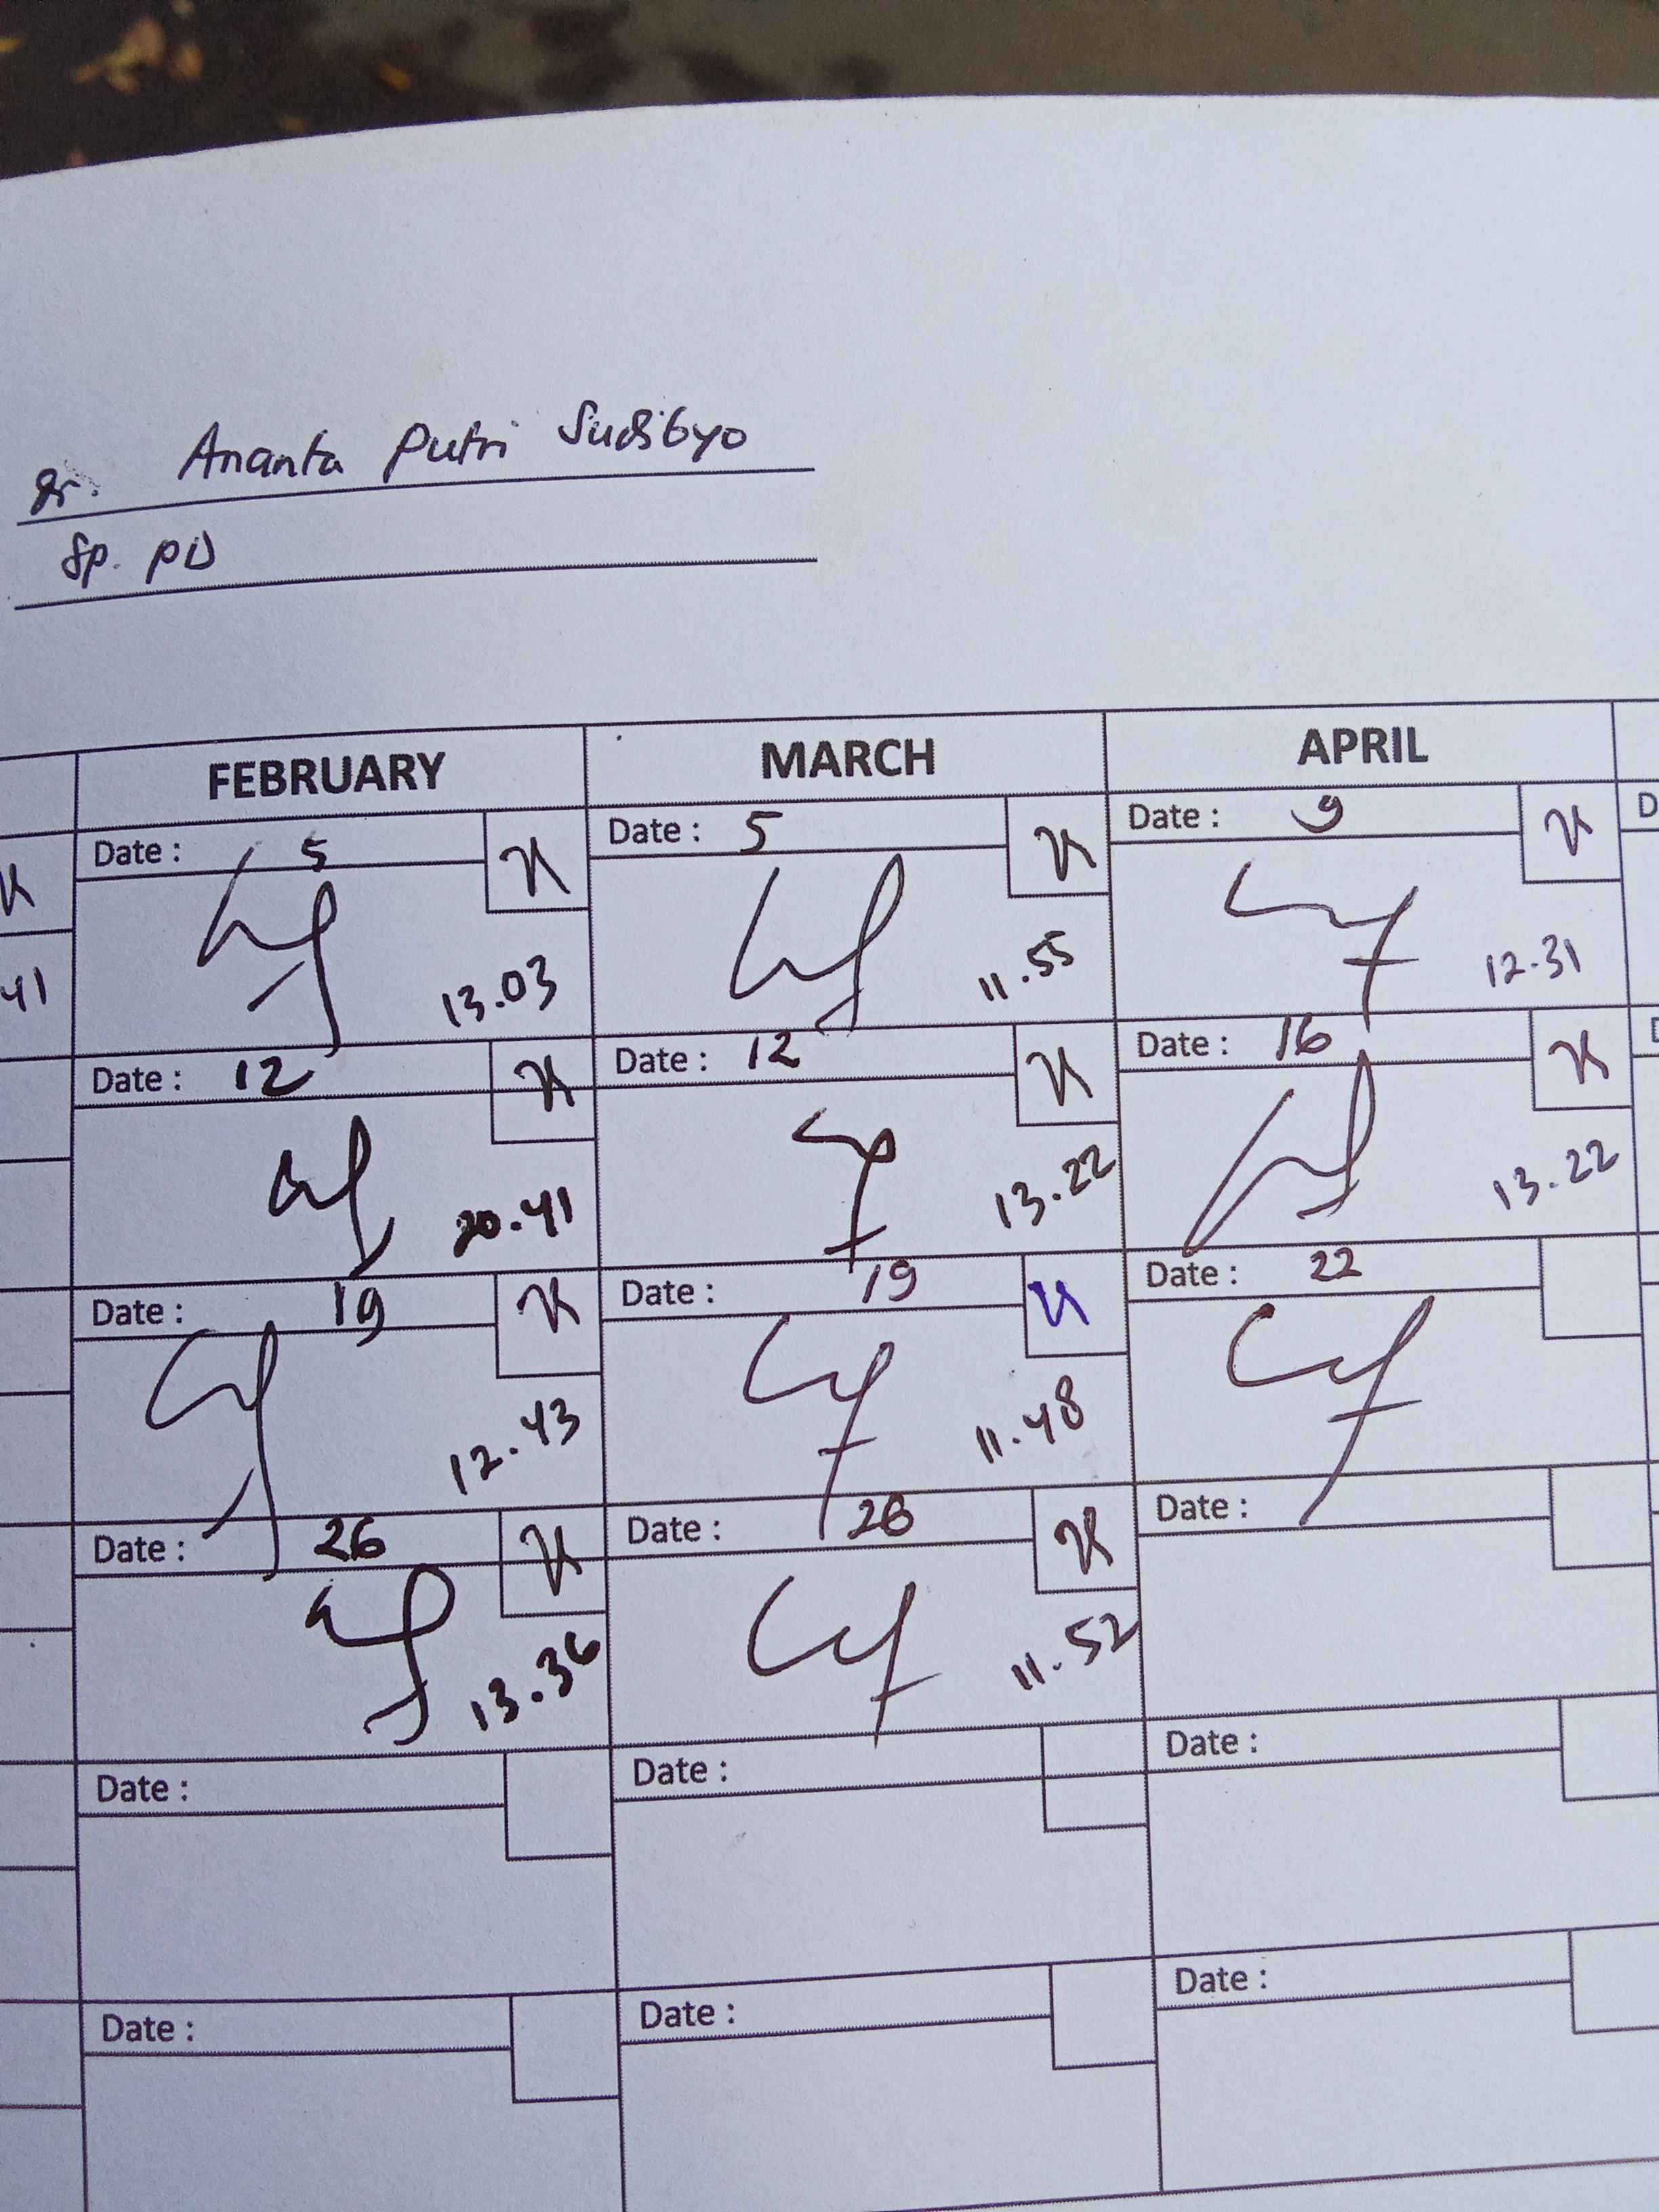 dr. Ananta Putri Sudibyo
Sp. PD
FEBRUARY MARCH APRIL
Date : 5 K Date : 5 K Date : 9 K
41 13.03 11.55 12.31
Date : 12 K Date : 12 K Date : 16 K
20.41 13.22 13.22
Date : 19 K Date : 19 K Date : 22
12.43 11.48
Date : 26 K Date : 26 K Date :
13.36 11.52
Date : Date : Date :
Date : Date : Date :